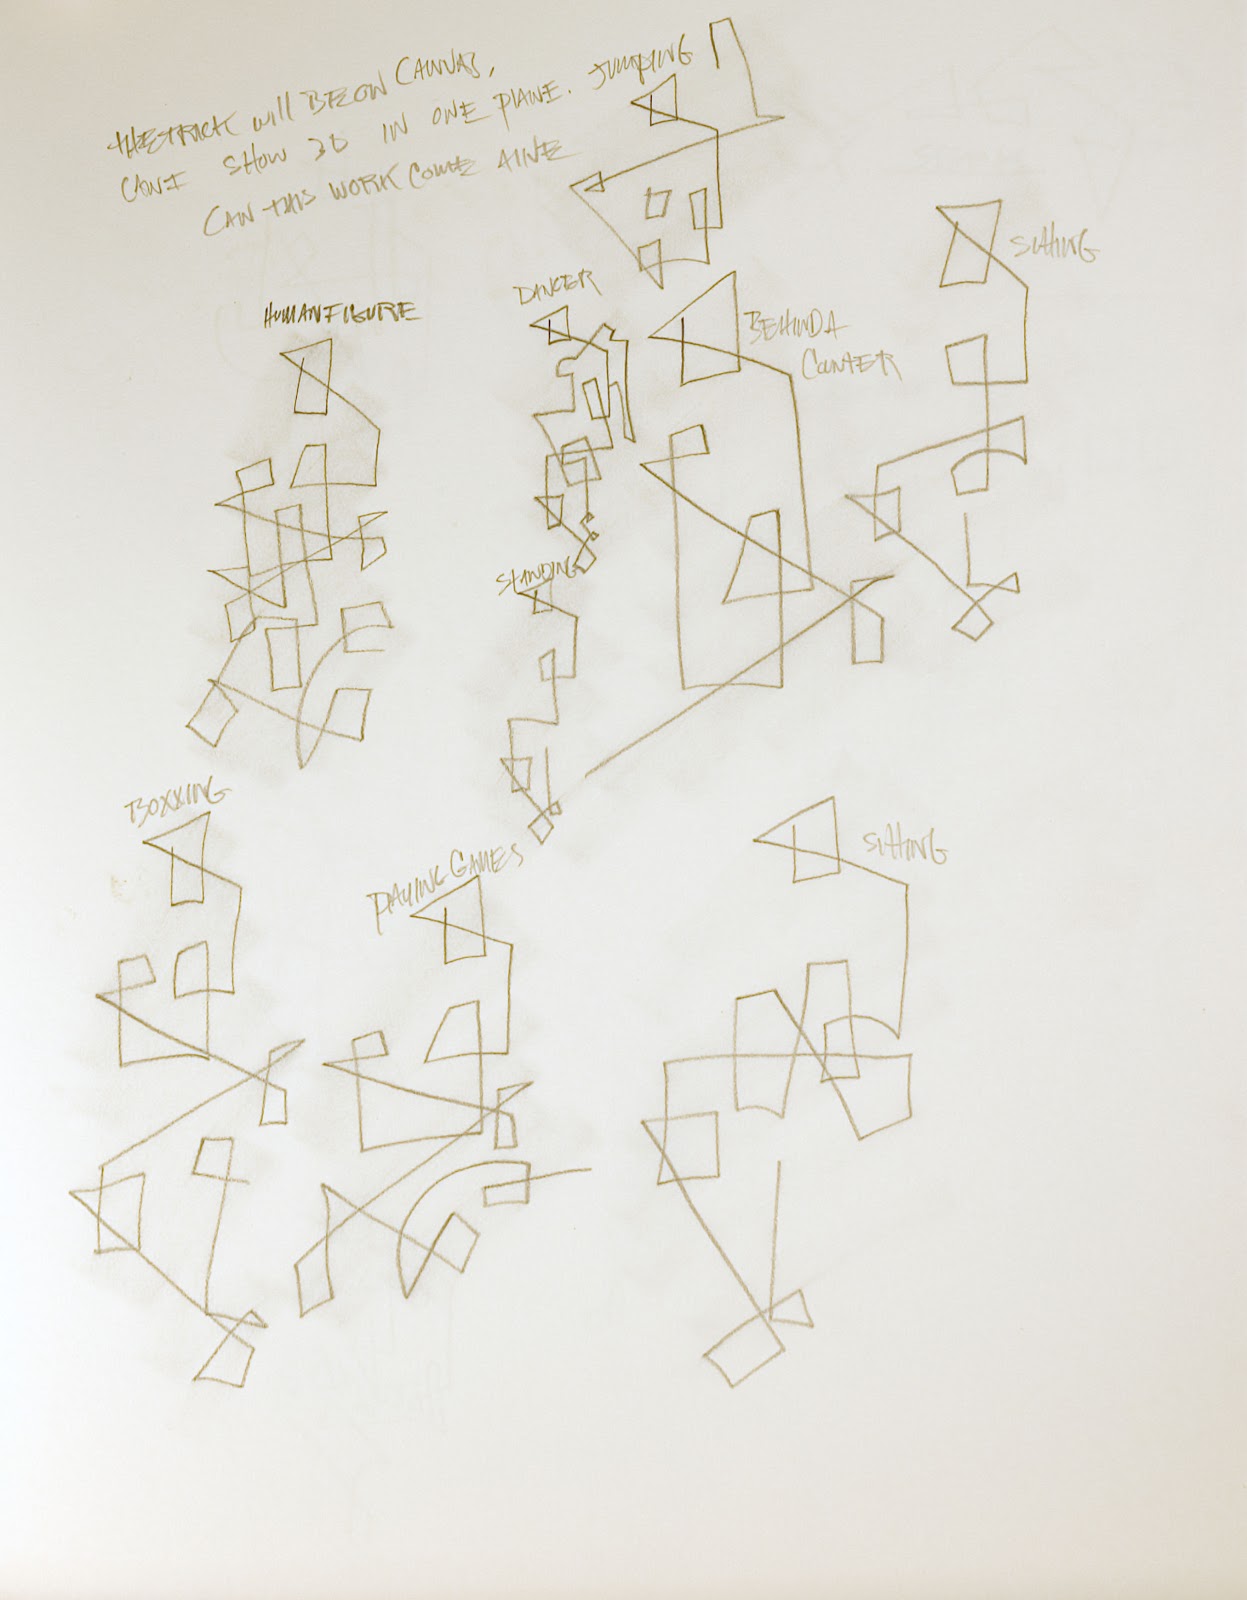 THE TRICK will BE ON CANVAS,
CAN I SHOW 3D IN ONE PLANE.
CAN THIS WORK COME ALIVE
JUMPING
SITTING
DANCER
HUMAN FIGURE
BEHIND A
COUNTER
STANDING
BOXXING
PLAYING GAMES
SITTING